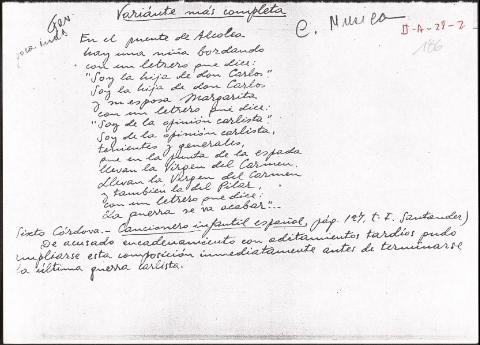 Variánte más completa
C. Musica
II-A-29-2
186
En el puente de Alcolea
hay una niña bordando
con un letrero que dice:
"Soy la hija de don Carlos"
Soy la hija de don Carlos
y su esposa Margarita
con un letrero que dice:
"Soy de la opinión carlista".
Soy de la opinión carlista,
tenientes y generales,
que en la punta de la espada
llevan la Virgen del Carmen.
Llevan la Virgen del Carmen
y también la del Pilar,
con un letrero que dice:
¡La guerra se va acabar!..
Sixto Córdova.- Cancionero infantil español, pág. 127, t. I. Santander)
De acusado encadenamiento con aditamientos tardíos pudo
ampliarse esta composición inmediatamente antes de terminarse
la última guerra carlista.